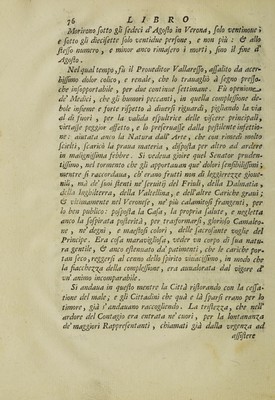 76 LIBRO
Morirono sotto gli sedeci d'Agosto in Verona, solo ventinoue;
e sotto gli diecisette solo ventidue persone, e non più: & allo
stesso numero, e minor anco rimasero i morti, sino il fine d'
Agosto.
Nel qual tempo, fù il Proueditor Vallaresso, assalito da acer-
bissimo dolor colico, e renale, che lo trauagliò à segno presso-
che insopportabile, per due continue settimane. Fù openione
de' Medici, che gli humori peccanti, in quella complessione de-
bole insieme e forte rispetto à diuersi riguardi, pigliando la via
al di fuori, per la valida espultrice delle viscere principali,
vietasse peggior assetto, e lo preseruasse dalla pestilente infettio-
ne: aiutata anco la Natura dall' Arte, che con rimedi molto
scielti, scaricò la praua materia, disposta per altro ad ardere
in malignissima febbre. Si vedeua gioire quel Senator pruden-
tissimo, nel tormento che gli apportauan que' dolori sensibilissimi,
mentre si raccordaua, ch' erano frutti non di leggierezze gioue-
nili, mà de' suoi stenti ne' seruitij del Friuli, della Dalmatia,
della Inghilterra, della Valtellina, e dell' altre Cariche graui;
& vltimamente nel Veronese, ne' più calamitosi frangenti, per
lo ben publico: posposta la Casa, la propria salute, e negletta
anco la sospirata posterità, per trasformarsi, glorioso Camaleo-
ne, ne' degni, e maestosi colori, delle sacrosante voglie del
Principe. Era cosa marauigliosa, veder vn corpo di sua natu-
ra gentile, & anco estenuato da' patimenti, che le cariche por-
tan seco, reggersi al cenno dello spirito viuacissimo, in modo che
la fiacchezza della complessione, era auualorata dal vigore d'
vn' animo incomparabile.
Si andaua in questo mentre la Città ristorando con la cessa-
tione del male; e gli Cittadini che quà e là sparsi erano per lo
timore, già s'andauano raccogliendo. La tristezza, che nell'
ardore del Contagio era entrata ne' cuori, per la lontananza
de' maggiori Rappresentanti, chiamati già dalla vrgenza ad
assistere